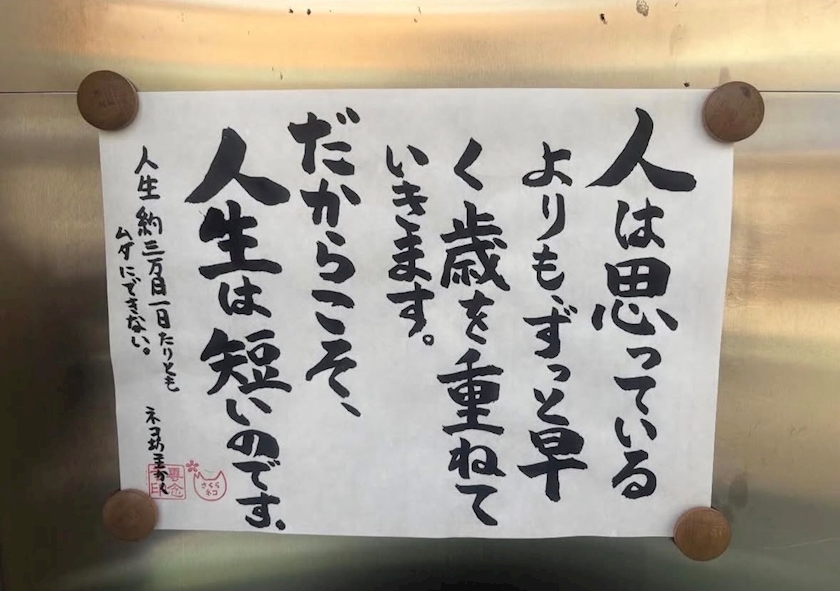 人は思っている
よりも、ずっと早
く歳を重ねて
いきます。
だからこそ、
人生は短いのです、
人生約三万日一日たりとも
ムダにできない。
ネコ坊主かく
専念
さくら
ネコ